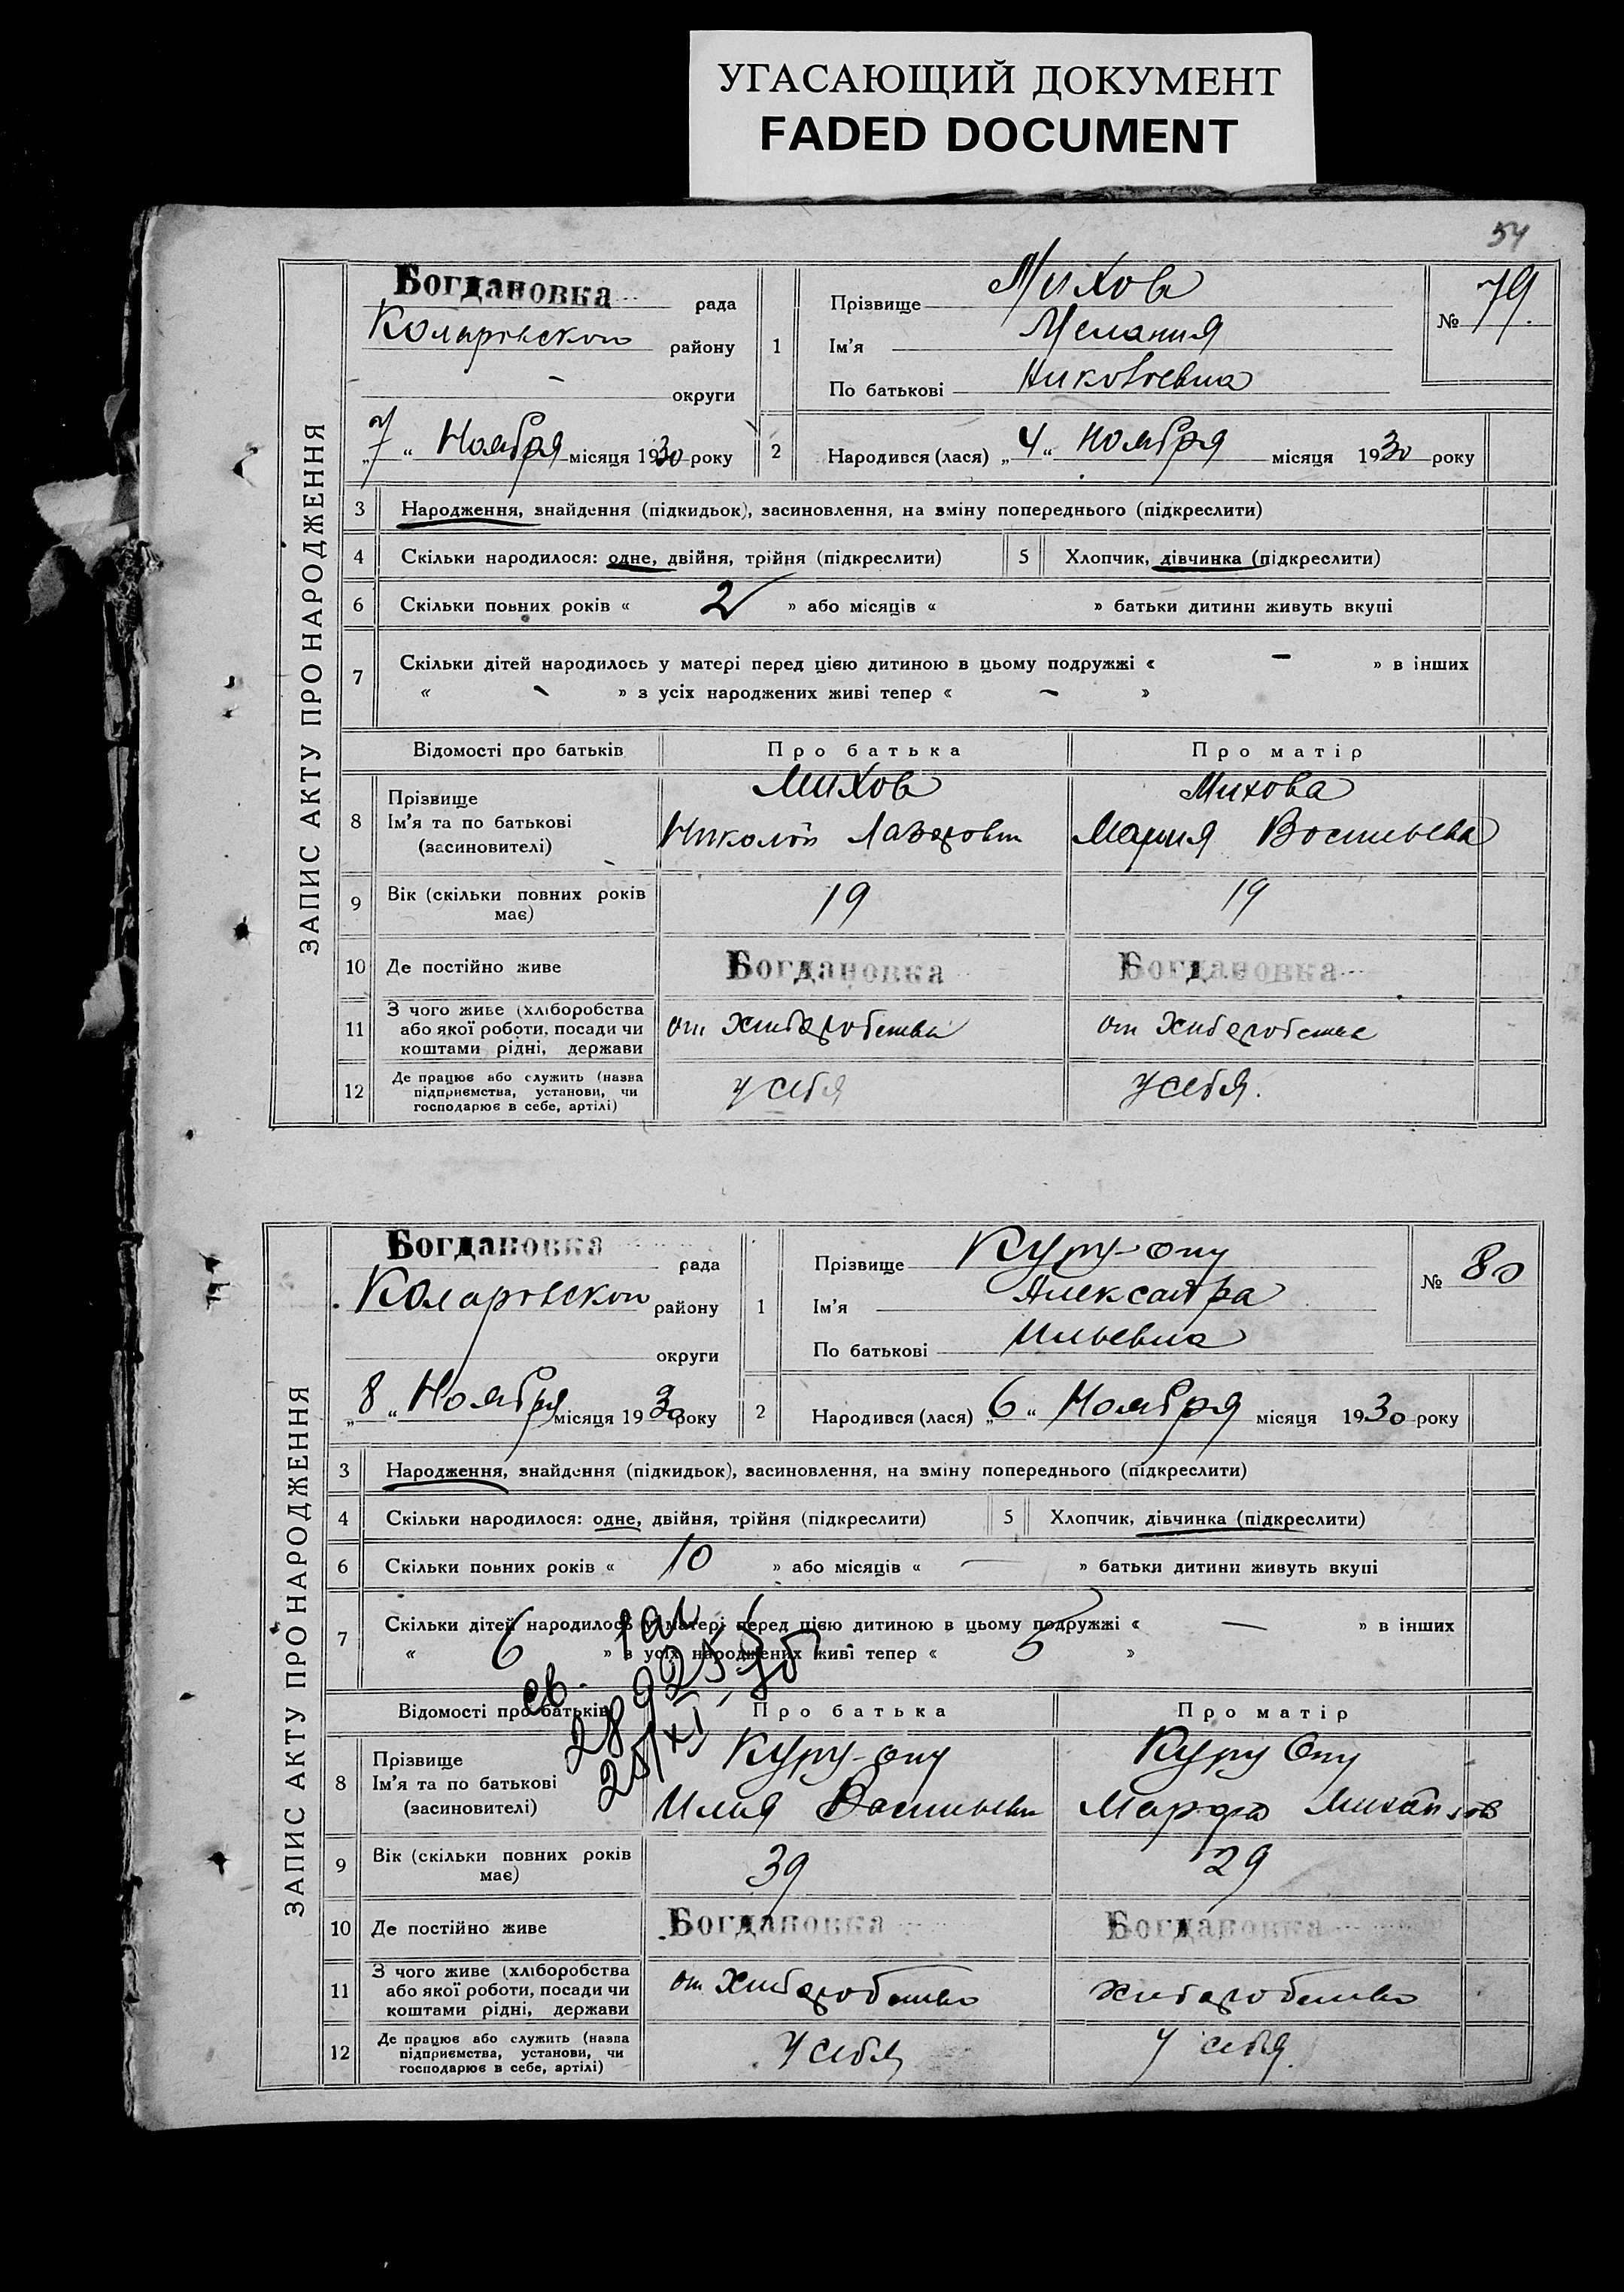 УГАСАЮЩИЙ ДОКУМЕНТ
FADED DOCUMENT
54
ЗАПИС АКТУ ПРО НАРОДЖЕННЯ
Богдановка рада
Коларовской району
округи
„7“ Ноября місяця 1930 року
1
Прізвище Михова
Ім'я Мелания
По батькові Николаевна
№ 79.
2 Народився (лася) „4“ Ноября місяця 1930 року
3 Народження, знайдення (підкидьок), засиновлення, на зміну попереднього (підкреслити)
4 Скільки народилося: одне, двійня, трійня (підкреслити) 5 Хлопчик, дівчинка (підкреслити)
6 Скільки повних років « 2 » або місяців « » батьки дитини живуть вкупі
7 Скільки дітей народилось у матері перед цією дитиною в цьому подружжі « - » в інших
« - » з усіх народжених живі тепер « - »
Відомості про батьків Про батька Про матір
8 Прізвище Михов Михова
Ім'я та по батькові Николай Лазарович Мария Васильева
(засиновителі)
9 Вік (скільки повних років має) 19 19
10 Де постійно живе Богдановка Богдановка
11 З чого живе (хліборобства або якої роботи, посади чи коштами рідні, держави от Хлиборобства от Хлиборобства
12 Де працює або служить (назва підприємства, установи, чи господарює в себе, артілі) у себя у себя.
ЗАПИС АКТУ ПРО НАРОДЖЕННЯ
Богдановка рада
Коларовской району
округи
„8“ Ноября місяця 1930 року
1
Прізвище Куру-опу
Ім'я Александра
По батькові Ильевна
№ 80
2 Народився (лася) „6“ Ноября місяця 1930 року
3 Народження, знайдення (підкидьок), засиновлення, на зміну попереднього (підкреслити)
4 Скільки народилося: одне, двійня, трійня (підкреслити) 5 Хлопчик, дівчинка (підкреслити)
6 Скільки повних років « 10 » або місяців « — » батьки дитини живуть вкупі
7 Скільки дітей народилось у матері перед цією дитиною в цьому подружжі « — » в інших
« 6 » з усіх народжених живі тепер « 5 »
св.
Відомості про батьків Про батька Про матір
8 Прізвище Куру-опу Куру Опу
Ім'я та по батькові Илия Васильевич Марфа Михайлов
(засиновителі)
9 Вік (скільки повних років має) 39 29
10 Де постійно живе Богдановка Богдановка
11 З чого живе (хліборобства або якої роботи, посади чи коштами рідні, держави от Хлиборобства Хлиборобства
12 Де працює або служить (назва підприємства, установи, чи господарює в себе, артілі) у себя у себя.